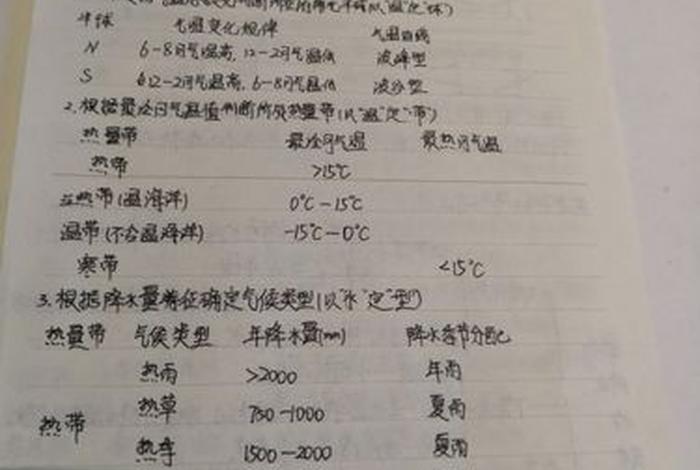 半球 气温变化规律 气温曲线
N 6-8月气温高, 12-2月气温低 波峰型
S 12-2月气温高, 6-8月气温低 波谷型
2.根据最冷月气温值判断所及热量带(以"温"定"带")
热量带 最冷月气温 最热月气温
热带 >15℃
亚热带(温海洋) 0℃-15℃
温带(不含温海洋) -15℃-0℃
寒带 <15℃
3.根据降水量特征确定气候类型(以"水"定"型")
热量带 气候类型 年降水量(mm) 降水季节分配
热雨 >2000 年雨
热草 750-1000 夏雨
热带
热季 1500-2000 夏雨